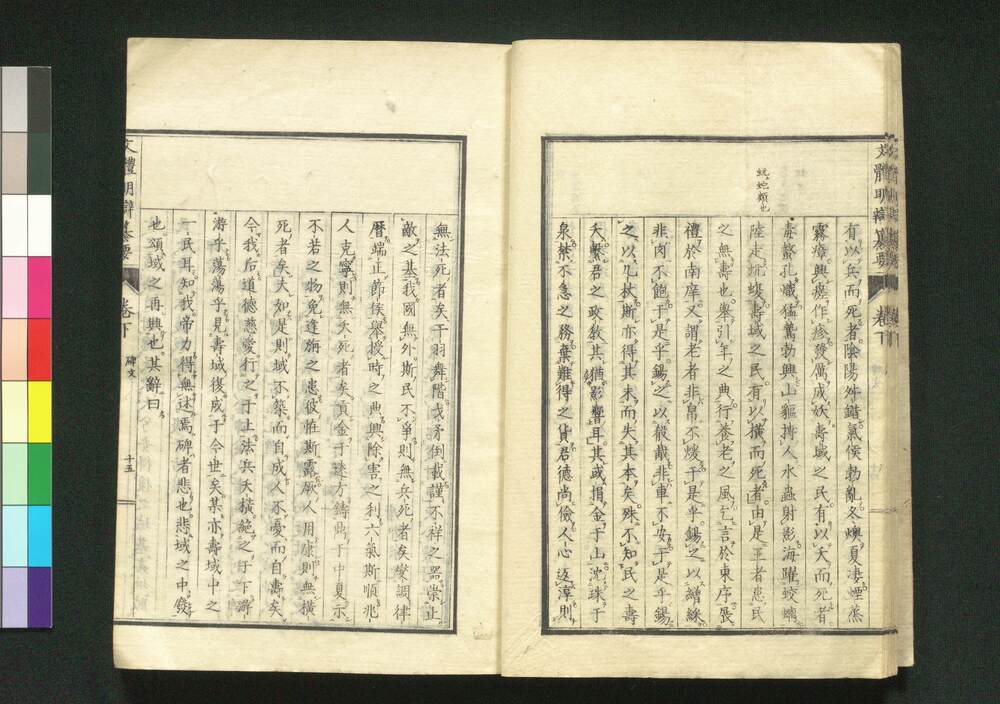 有以兵而死者陰陽舛錯氣侯勃亂冬燠夏淒煙蒸
霧瘴興瘥作疹發厲成妖壽域之民有以夭而死者
毒螫孔熾猛鷙勃興山軀搏人水蟲射影海躍蛟螭
陸走蚖蝮壽域之民有以橫而死者由是王者患民
之無壽也舉引年之典行養老之風乞言於東序展
禮於南庠又謂老者非帛不煖于是乎錫之以繒綵
非肉不飽于是乎錫之以餼, 非車不安于是乎錫
之以几杖斯亦得其末而失其本矣殊不知民之壽
夭繫君之政教其猶影響耳其或捐金于山沈珠于
泉禁不急之務棄難得之貨君德尚儉人心返淳則
蚖蛇類也
文體明辯纂要
卷下
無法死者矣干羽舞階戈矛倒載謹不祥之器崇止
敵之基我國無外斯民不爭則無兵死者矣變調律
曆端正節侯舉授時之典興除害之利六氣斯順兆
人克寧則無夭死者矣貢金于逑方鑄鼎于中夏示
不若之物免逢旃之患彼怪斯露厥人用康則無橫
死者矣夫如是則域不築而自成人不憂而自壽矣
今我后道德慈愛行之于上法兵夭橫施之于下游
游乎蕩蕩乎見壽域復成于今世矣某亦壽域中之
一民耳知我帝力得無述焉碑者悲也悲域之中廢
也頌域之再興也其辭曰
文體明辯纂要
卷下
碑文
十五